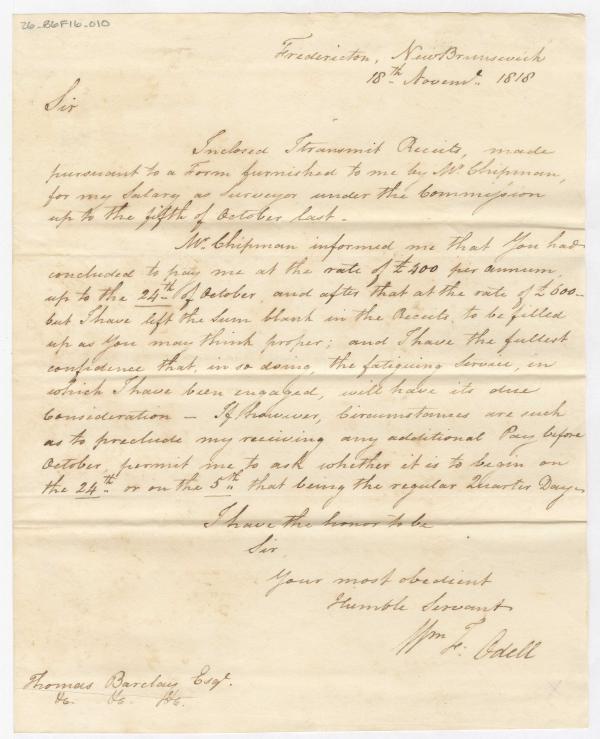 26-B6F16-010
Fredericton, New Brunswick
18th Novemr. 1818
Sir
Inclosed I transmit Receits, made
pursuant to a Form furnished to me by Mr. Chipman,
for my Salary as Surveyor under the Commission
up to the fifth of October last.
Mr. Chipman informed me that You had
concluded to pay me at the rate of £400 per annum,
up to the 24th of October, and after that at the rate of £600—
but I have left the Sum blank in the Receits, to be filled
up as You may think proper; and I have the fullest
confidence that, in so doing, the fatiguing Service, in
which I have been engaged, will have its due
Consideration — If, however, Circumstances are such
as to preclude my receiving any additional Pay before
October, permit me to ask whether it is to begin on
the 24th or on the 5th that being the regular Quarter Day—
I have the honor to be
Sir
Your most obedient
Humble Servant
Wm F: Odell
Thomas Barclay Esqr.
&c. &c. &c.